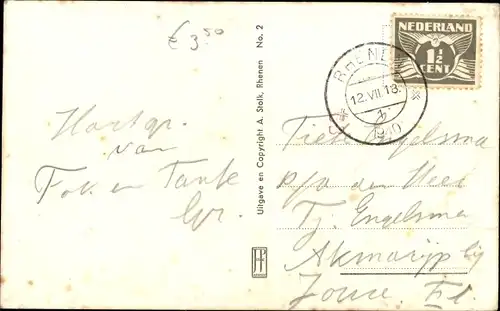 € 3.50
Hartgr.
van
Fok en Tante
Gr.
Uitgave en Copyright A. Stolk, Rhenen No. 2
NEDERLAND
1½
CENT
RHENEN
12.VII.18
1940
Engelsma
p/a den Heer
Tj. Engelsma
Akmarijp bij
Joure. Fr.